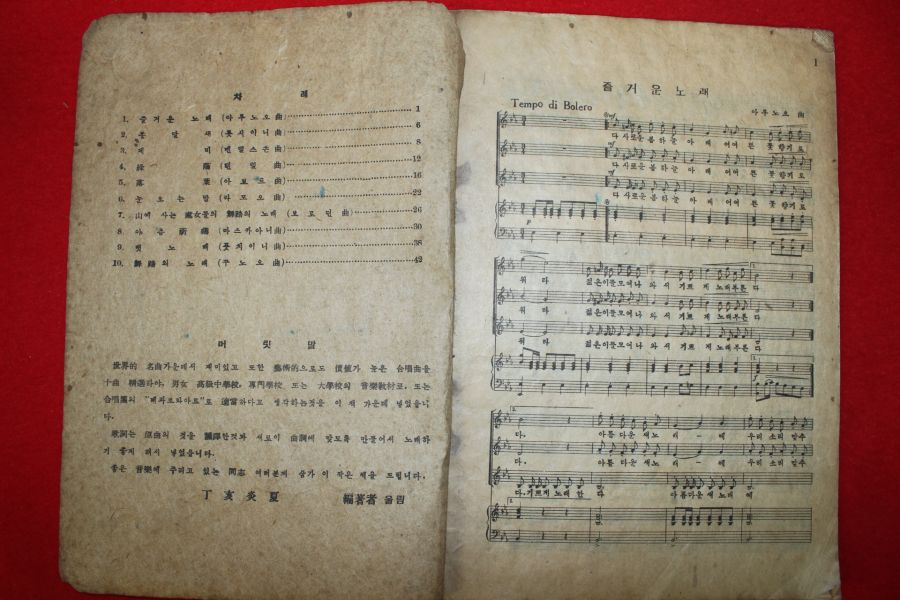 차 례
1. 즐거운 노래 (아우노오 曲) 1
2. 종 달 새 (롯시이니 曲) 6
3. 제 비 (멘델스존 曲) 8
4. 綠 蔭 曲) 12
5. 落 葉 曲) 16
6. 눈오는 밤 曲) 22
7. 山에 사는 處女들의 舞踏의 노래 (보로딘 曲) 26
8. 아츰 祈禱 (마스카아니 曲) 30
9. 뱃 노래 曲) 38
10. 舞踏의 노래 (구노오 曲) 42
머 릿 말
世界的 名曲가운데서 재미있고 또한 藝術的으로도 價値가 높은 合唱曲을
十曲 精選하야, 男女 高級中學校, 專門學校 또는 大學校의 音樂敎材로, 또는
合唱團의 "레파토라아트"로 適當하다고 생각하는것을 이 책 가운데 넣었읍니
다.
歌詞는 原曲의 것을 飜譯한것과 새로이 曲調에 맞도록 만들어서 노래하
기 좋게 해서 넣었읍니다.
좋은 音樂에 주리고 있는 同志 여러분께 삼가 이 작은 책을 드립니다.
丁亥炎夏 編著者 올림
1
즐거운노래
Tempo di Bolero
아우노오 曲
다 사로운 봄하늘 아 래 어여 쁜 꽃 향기 로
다 사로운 봄하늘 아 래 어여 쁜 꽃 향기 로
다 사로운 봄하늘 아 래 어여 쁜 꽃 향기 로
워 라 젊은이들모여나 와 서 기쁘 게 노래부른 다
워 라 젊은이들모여나 와 서 기쁘 게 노래부른 다
워 라 젊은이들모여나 와 서 기쁘 게 노래부른 다
다. 아름 다운 새노 래 - 에 우리 소리 맞추
다. 아름 다운 새노 래 - 에 우리 소리 맞추
다. 기쁘게 노래 한 다 아름다운 새 노래 에